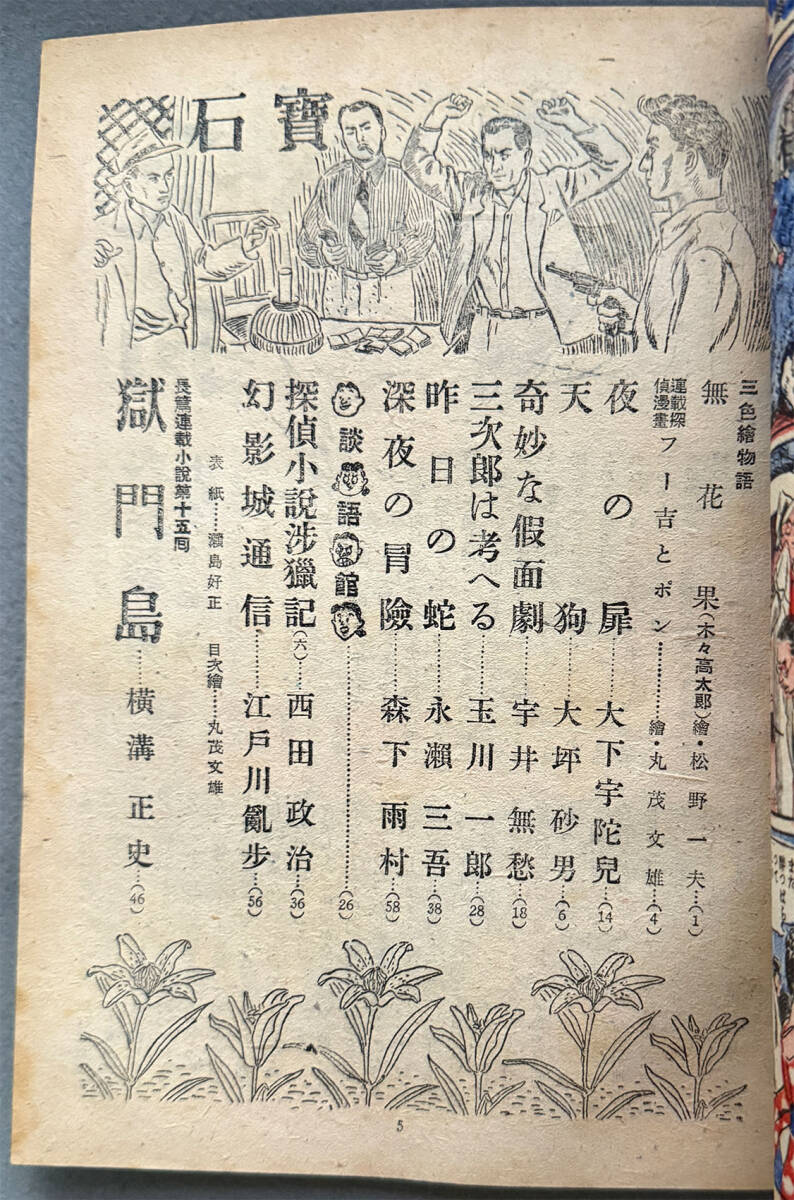 寶石
三色繪物語
無花果(木々高太郎)繪・松野一夫…(1)
連載探偵漫畫
フー吉とポン…………繪・丸茂文雄…(4)
夜の扉……大下宇陀兒…(14)
天狗……大坪砂男…(6)
奇妙な假面劇……宇井無愁…(18)
三次郎は考へる……玉川一郎…(28)
昨日の蛇……永瀬三吾…(38)
深夜の冒險……森下雨村…(58)
談語館…………(26)
探偵小說涉獵記(六)……西田政治…(36)
幻影城通信……江戶川亂步…(56)
表紙……瀨島好正 目次繪……丸茂文雄
長篇連載小說第十五囘
獄門島……橫溝正史…(46)
5